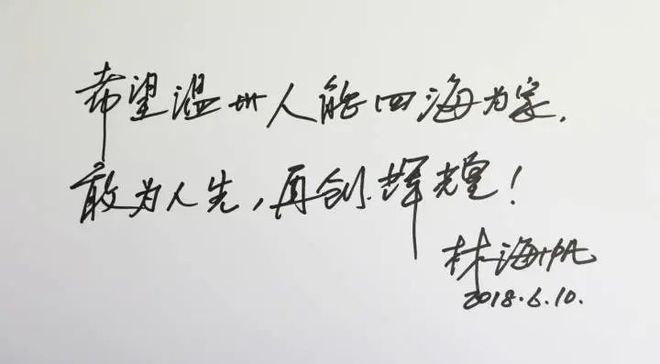 希望温州人能四海为家，
敢为人先，再创辉煌！
林海帆
2018.6.10.